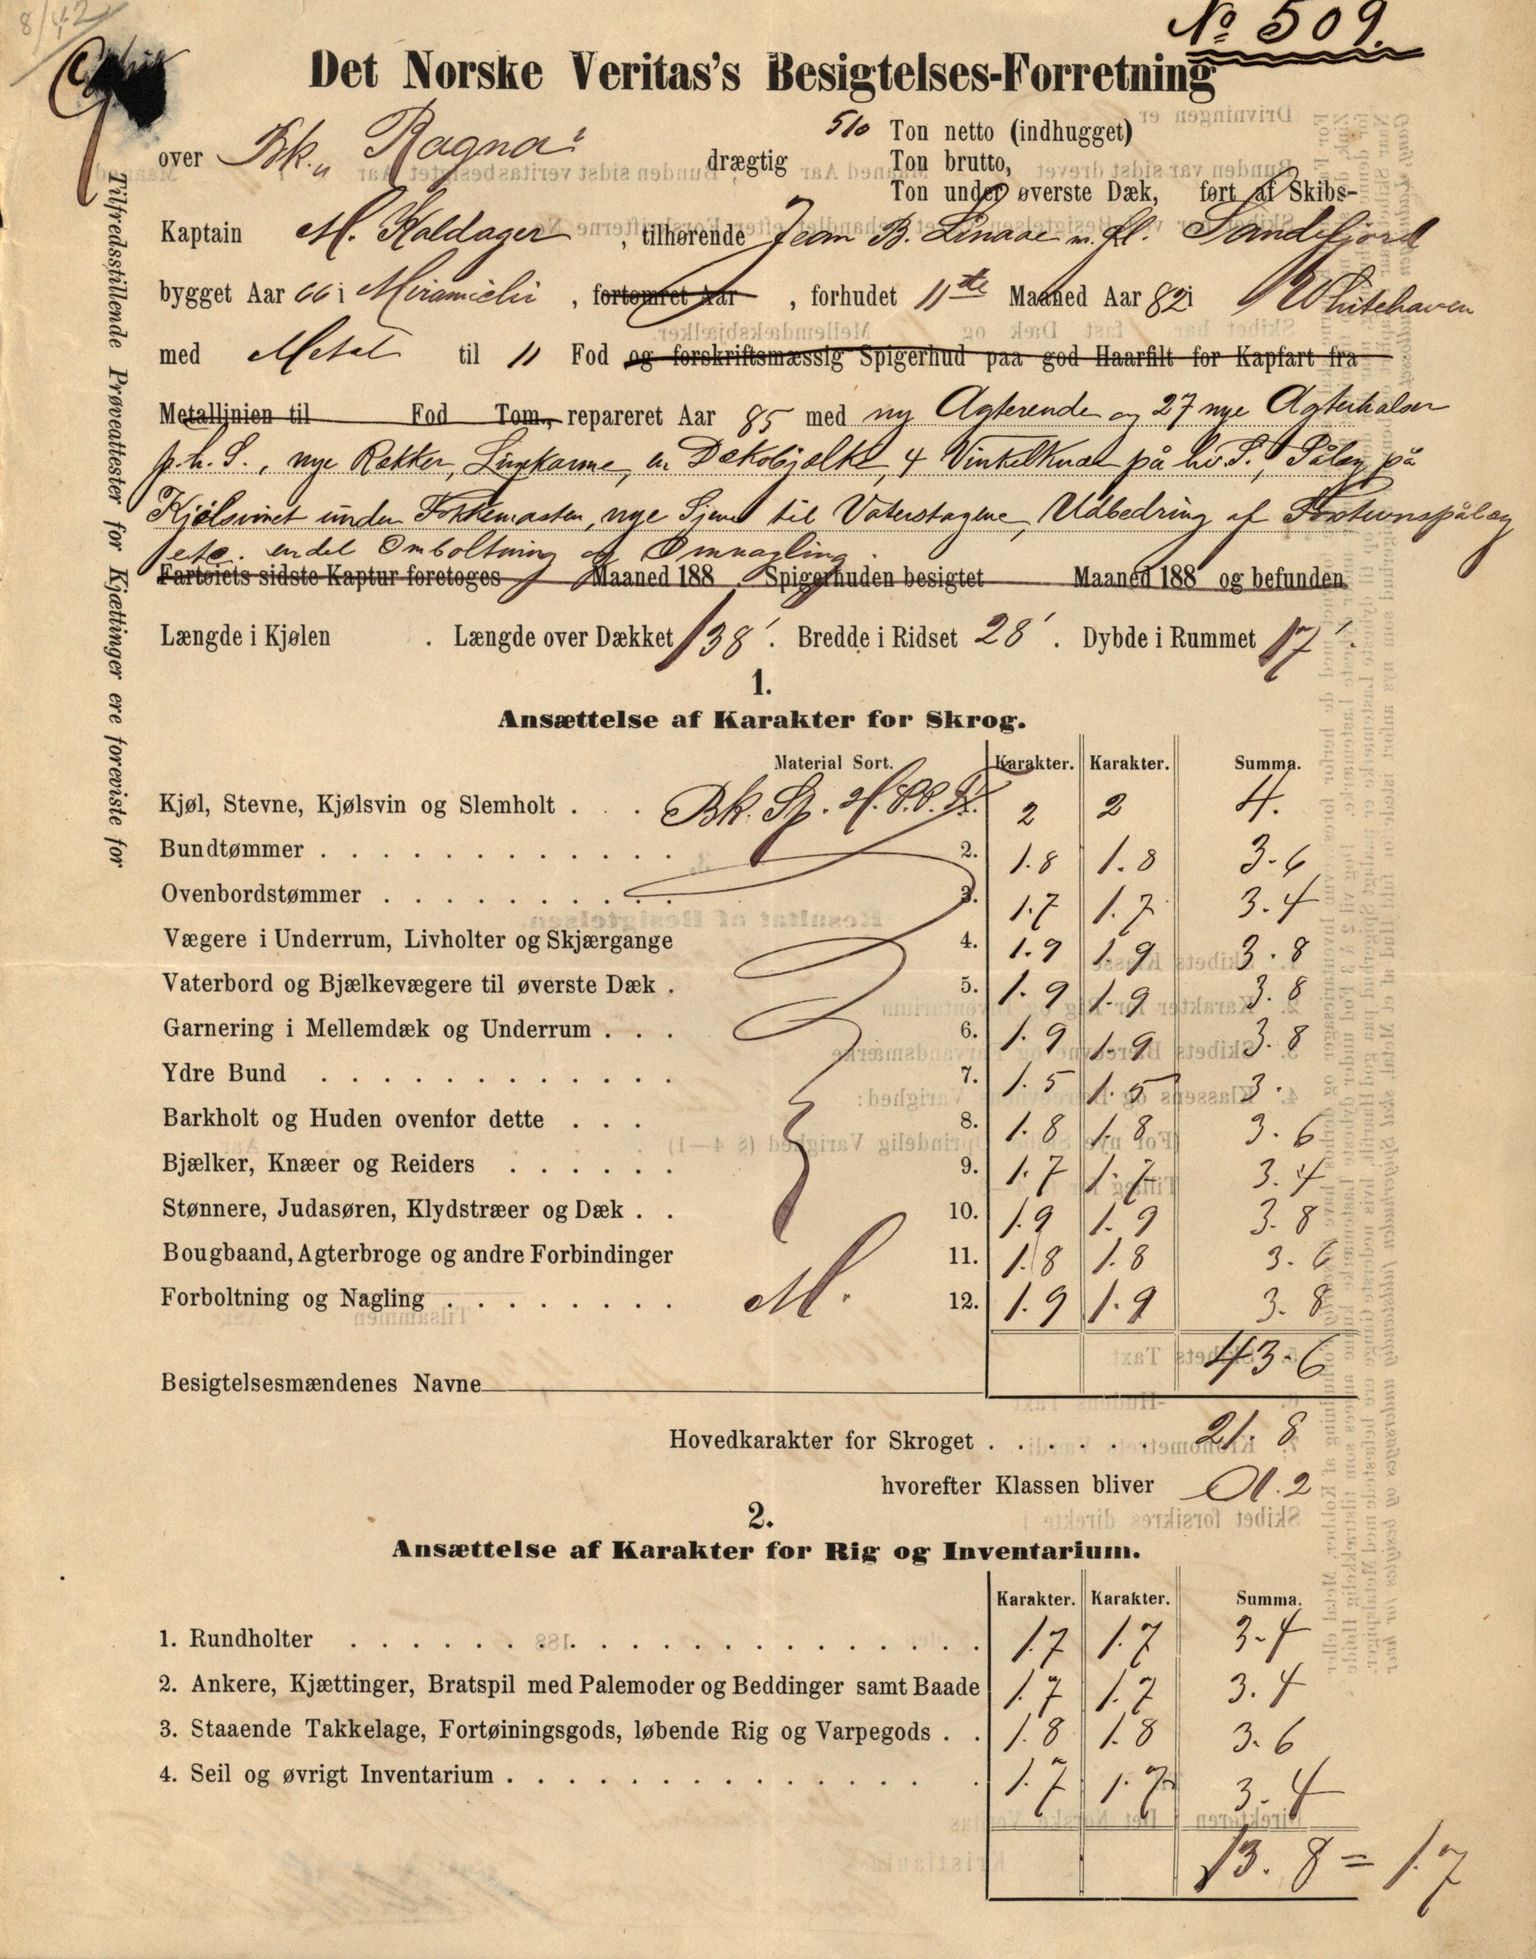 8/42
No 509.
Det Norske Veritas's Besigtelses-Forretning
over Bk. „Ragna“ drægtig 510 Ton netto (indhugget)
Ton brutto,
Ton under øverste Dæk, ført af Skibs-
Kaptain M. Kaldager, tilhørende Jean B. Linaae m. fl. Sandefjord
bygget Aar 66 i Miramichi, fortømret Aar , forhudet 11te Maaned Aar 82 i Whitehaven
med Metal til 11 Fod og forskriftsmæssig Spigerhud paa god Haarfilt for Kapfart fra
Metallinien til Fod Tom., repareret Aar 85 med ny Agterende og 27 nye Agterhalser
p. h. S., nye Røkker, en Dæksbjælke, 4 Vinkelknær på hv. S., Pålæg på
Kjølsvinet under Fokkemasten, nye til Vaterstagene, Udbedring af
etc. endel Omboltning og Omnagling.
Fartøiets sidste Kaptur foretoges Maaned 188 . Spigerhuden besigtet Maaned 188 og befunden
Længde i Kjølen . Længde over Dækket 138'. Bredde i Ridset 28'. Dybde i Rummet 17'.
Tilfredsstillende Prøveattester for Kjættinger ere foreviste for
1.
Ansættelse af Karakter for Skrog.
Material Sort. Karakter. Karakter. Summa.
Kjøl, Stevne, Kjølsvin og Slemholt . . . Bk. Sp. H. P.P. 2 2 4.
Bundtømmer . . . 2. 1.8 1.8 3.6
Ovenbordstømmer . . . 3. 1.7 1.7 3.4
Vægere i Underrum, Livholter og Skjærgange 4. 1.9 1.9 3.8
Vaterbord og Bjælkevægere til øverste Dæk . 5. 1.9 1.9 3.8
Garnering i Mellemdæk og Underrum . . . 6. 1.9 1.9 3.8
Ydre Bund . . . 7. 1.5 1.5 3.
Barkholt og Huden ovenfor dette . . . 8. 1.8 1.8 3.6
Bjælker, Knæer og Reiders . . . 9. 1.7 1.7 3.4
Stønnere, Judasøren, Klydstræer og Dæk . . 10. 1.9 1.9 3.8
Bougbaand, Agterbroge og andre Forbindinger 11. 1.8 1.8 3.6
Forboltning og Nagling . . . M. 12. 1.9 1.9 3.8
43.6
Besigtelsesmændenes Navne
Hovedkarakter for Skroget . . . 21.8
hvorefter Klassen bliver A.2
2.
Ansættelse af Karakter for Rig og Inventarium.
Karakter. Karakter. Summa.
1. Rundholter . . . 1.7 1.7 3.4
2. Ankere, Kjættinger, Bratspil med Palemoder og Beddinger samt Baade 1.7 1.7 3.4
3. Staaende Takkelage, Fortøiningsgods, løbende Rig og Varpegods . . 1.8 1.8 3.6
4. Seil og øvrigt Inventarium . . . 1.7 1.7 3.4
13.8 = 1.7